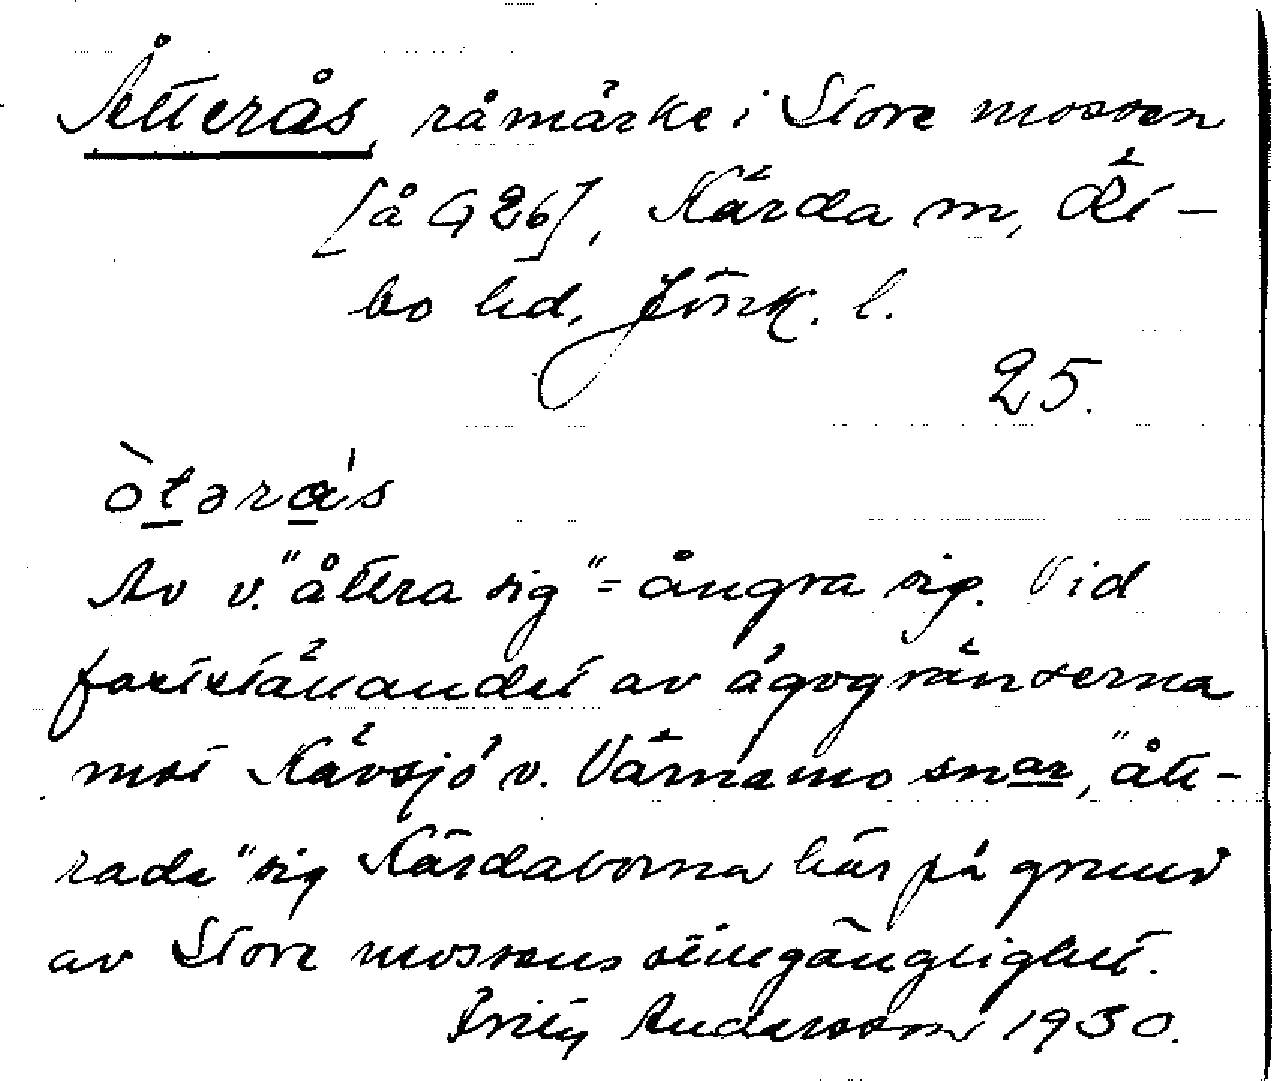 Åtterås, råmärke i Store mossen
[å G 26], Kärda sn, Öst-
bo hd, Jönk. l.
25.
òtərås
Av v. "åttra sig" = ångra sig. Vid
fastställandet av ägogränserna
mot Kävsjö o. Värnamo snar, "ått-
rade" sig Kärdaborna här på grund
av Store mossens otillgänglighet.
Andersson 1930.